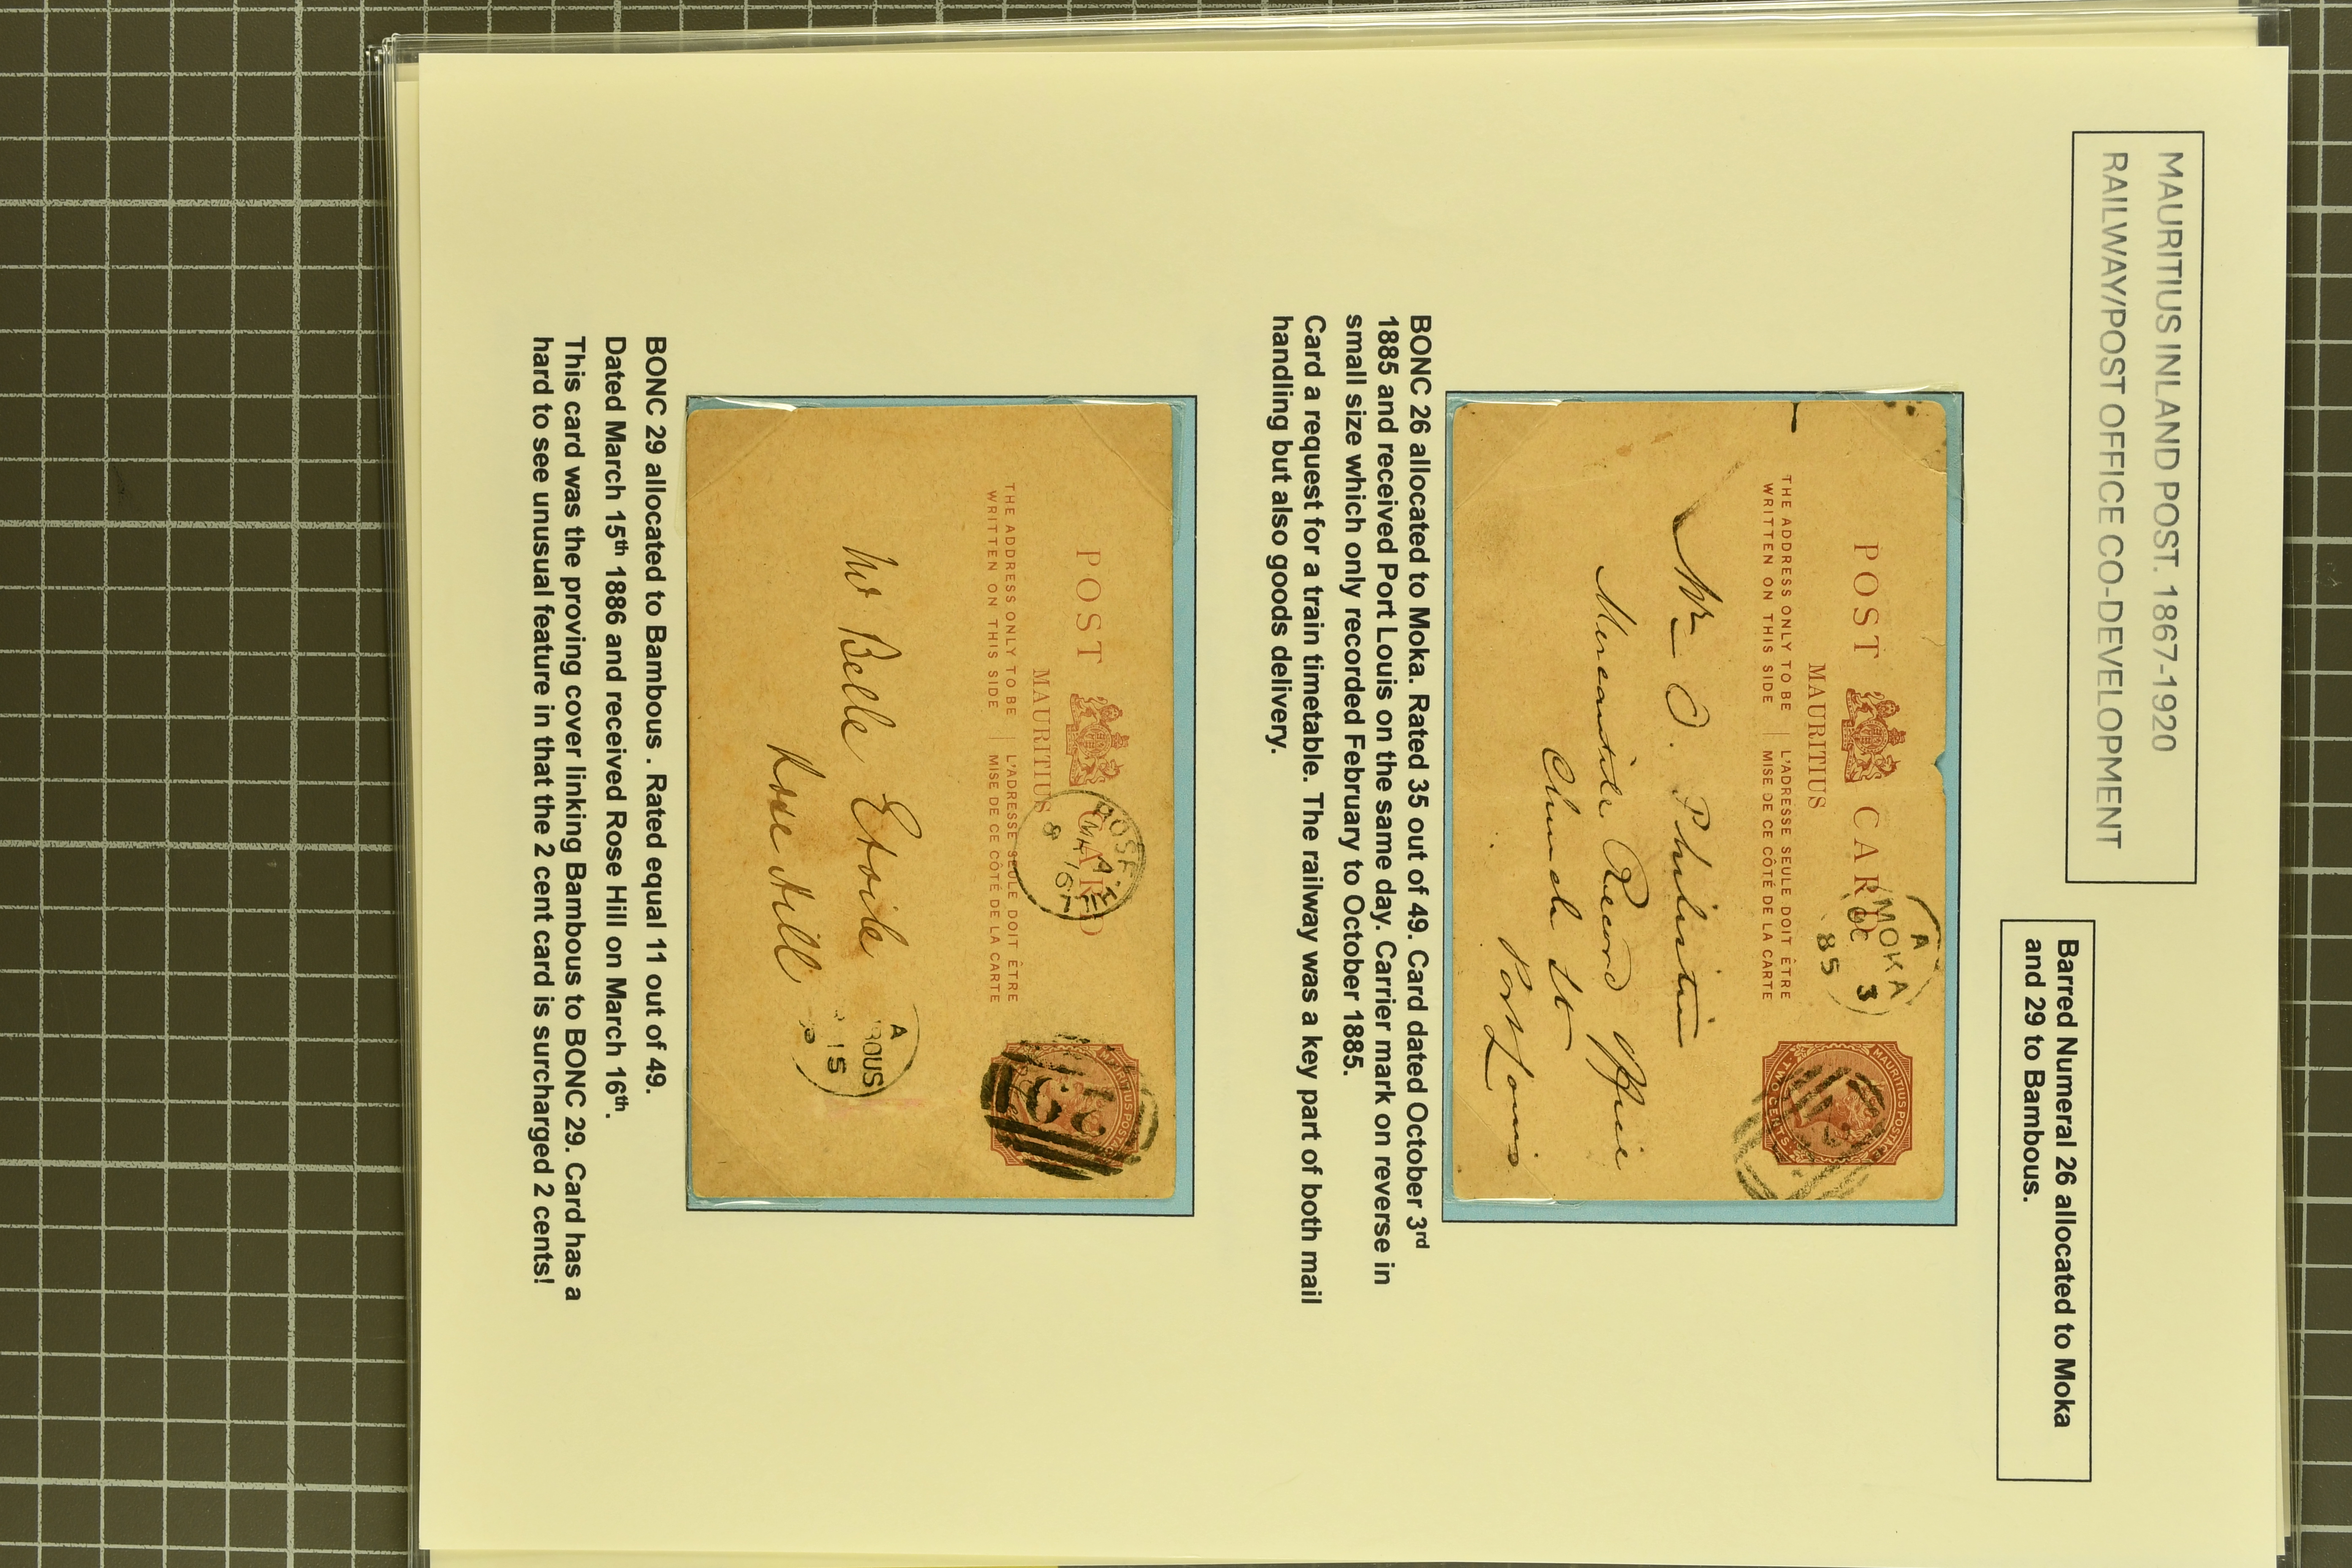 MAURITIUS INLAND POST. 1867-1920
RAILWAY/POST OFFICE CO-DEVELOPMENT
Barred Numeral 26 allocated to Moka
and 29 to Bambous.
POST CARD
MAURITIUS
THE ADDRESS ONLY TO BE | L'ADRESSE SEULE DOIT ÊTRE
WRITTEN ON THIS SIDE | MISE DE CE CÔTÉ DE LA CARTE
A
MOKA
OC 3
85
MAURITIUS POSTAGE
TWO CENTS
Mr O. Philibertin
Mercantile Record Office
Church St
Port Louis
BONC 26 allocated to Moka. Rated 35 out of 49. Card dated October 3rd
1885 and received Port Louis on the same day. Carrier mark on reverse in
small size which only recorded February to October 1885.
Card a request for a train timetable. The railway was a key part of both mail
handling but also goods delivery.
POST CARD
MAURITIUS
THE ADDRESS ONLY TO BE | L'ADRESSE SEULE DOIT ÊTRE
WRITTEN ON THIS SIDE | MISE DE CE CÔTÉ DE LA CARTE
ROSE
MR 16
8
MAURITIUS POSTAGE
29
Mr Belle Etoile
Rose Hill
A
BOUS
15
BONC 29 allocated to Bambous . Rated equal 11 out of 49.
Dated March 15th 1886 and received Rose Hill on March 16th.
This card was the proving cover linking Bambous to BONC 29. Card has a
hard to see unusual feature in that the 2 cent card is surcharged 2 cents!